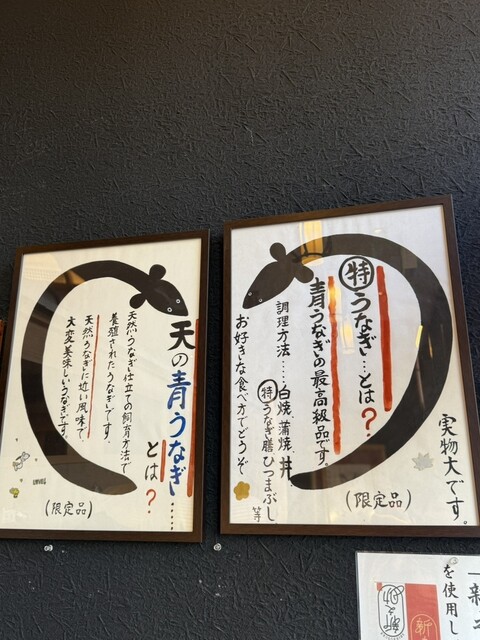 特うなぎ…とは?
青うなぎの最高級品です。
調理方法……白焼 蒲焼 丼
特うなぎ膳 ひつまぶし
等
お好きな食べ方でどうぞ
(限定品)
実物大です。
天の青うなぎ……
とは?
天然うなぎ仕立ての飼育方法で
養殖されたうなぎです。
天然うなぎに近い風味で、
大変美味しいうなぎです。
(限定品)
を使用し